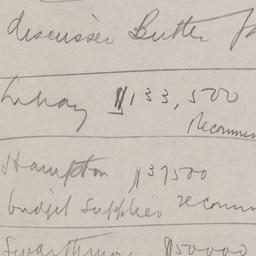 discussed Butter
$133,500
Recommen
Hampton $37500
budget supplies recomm
Swarthmore $50000